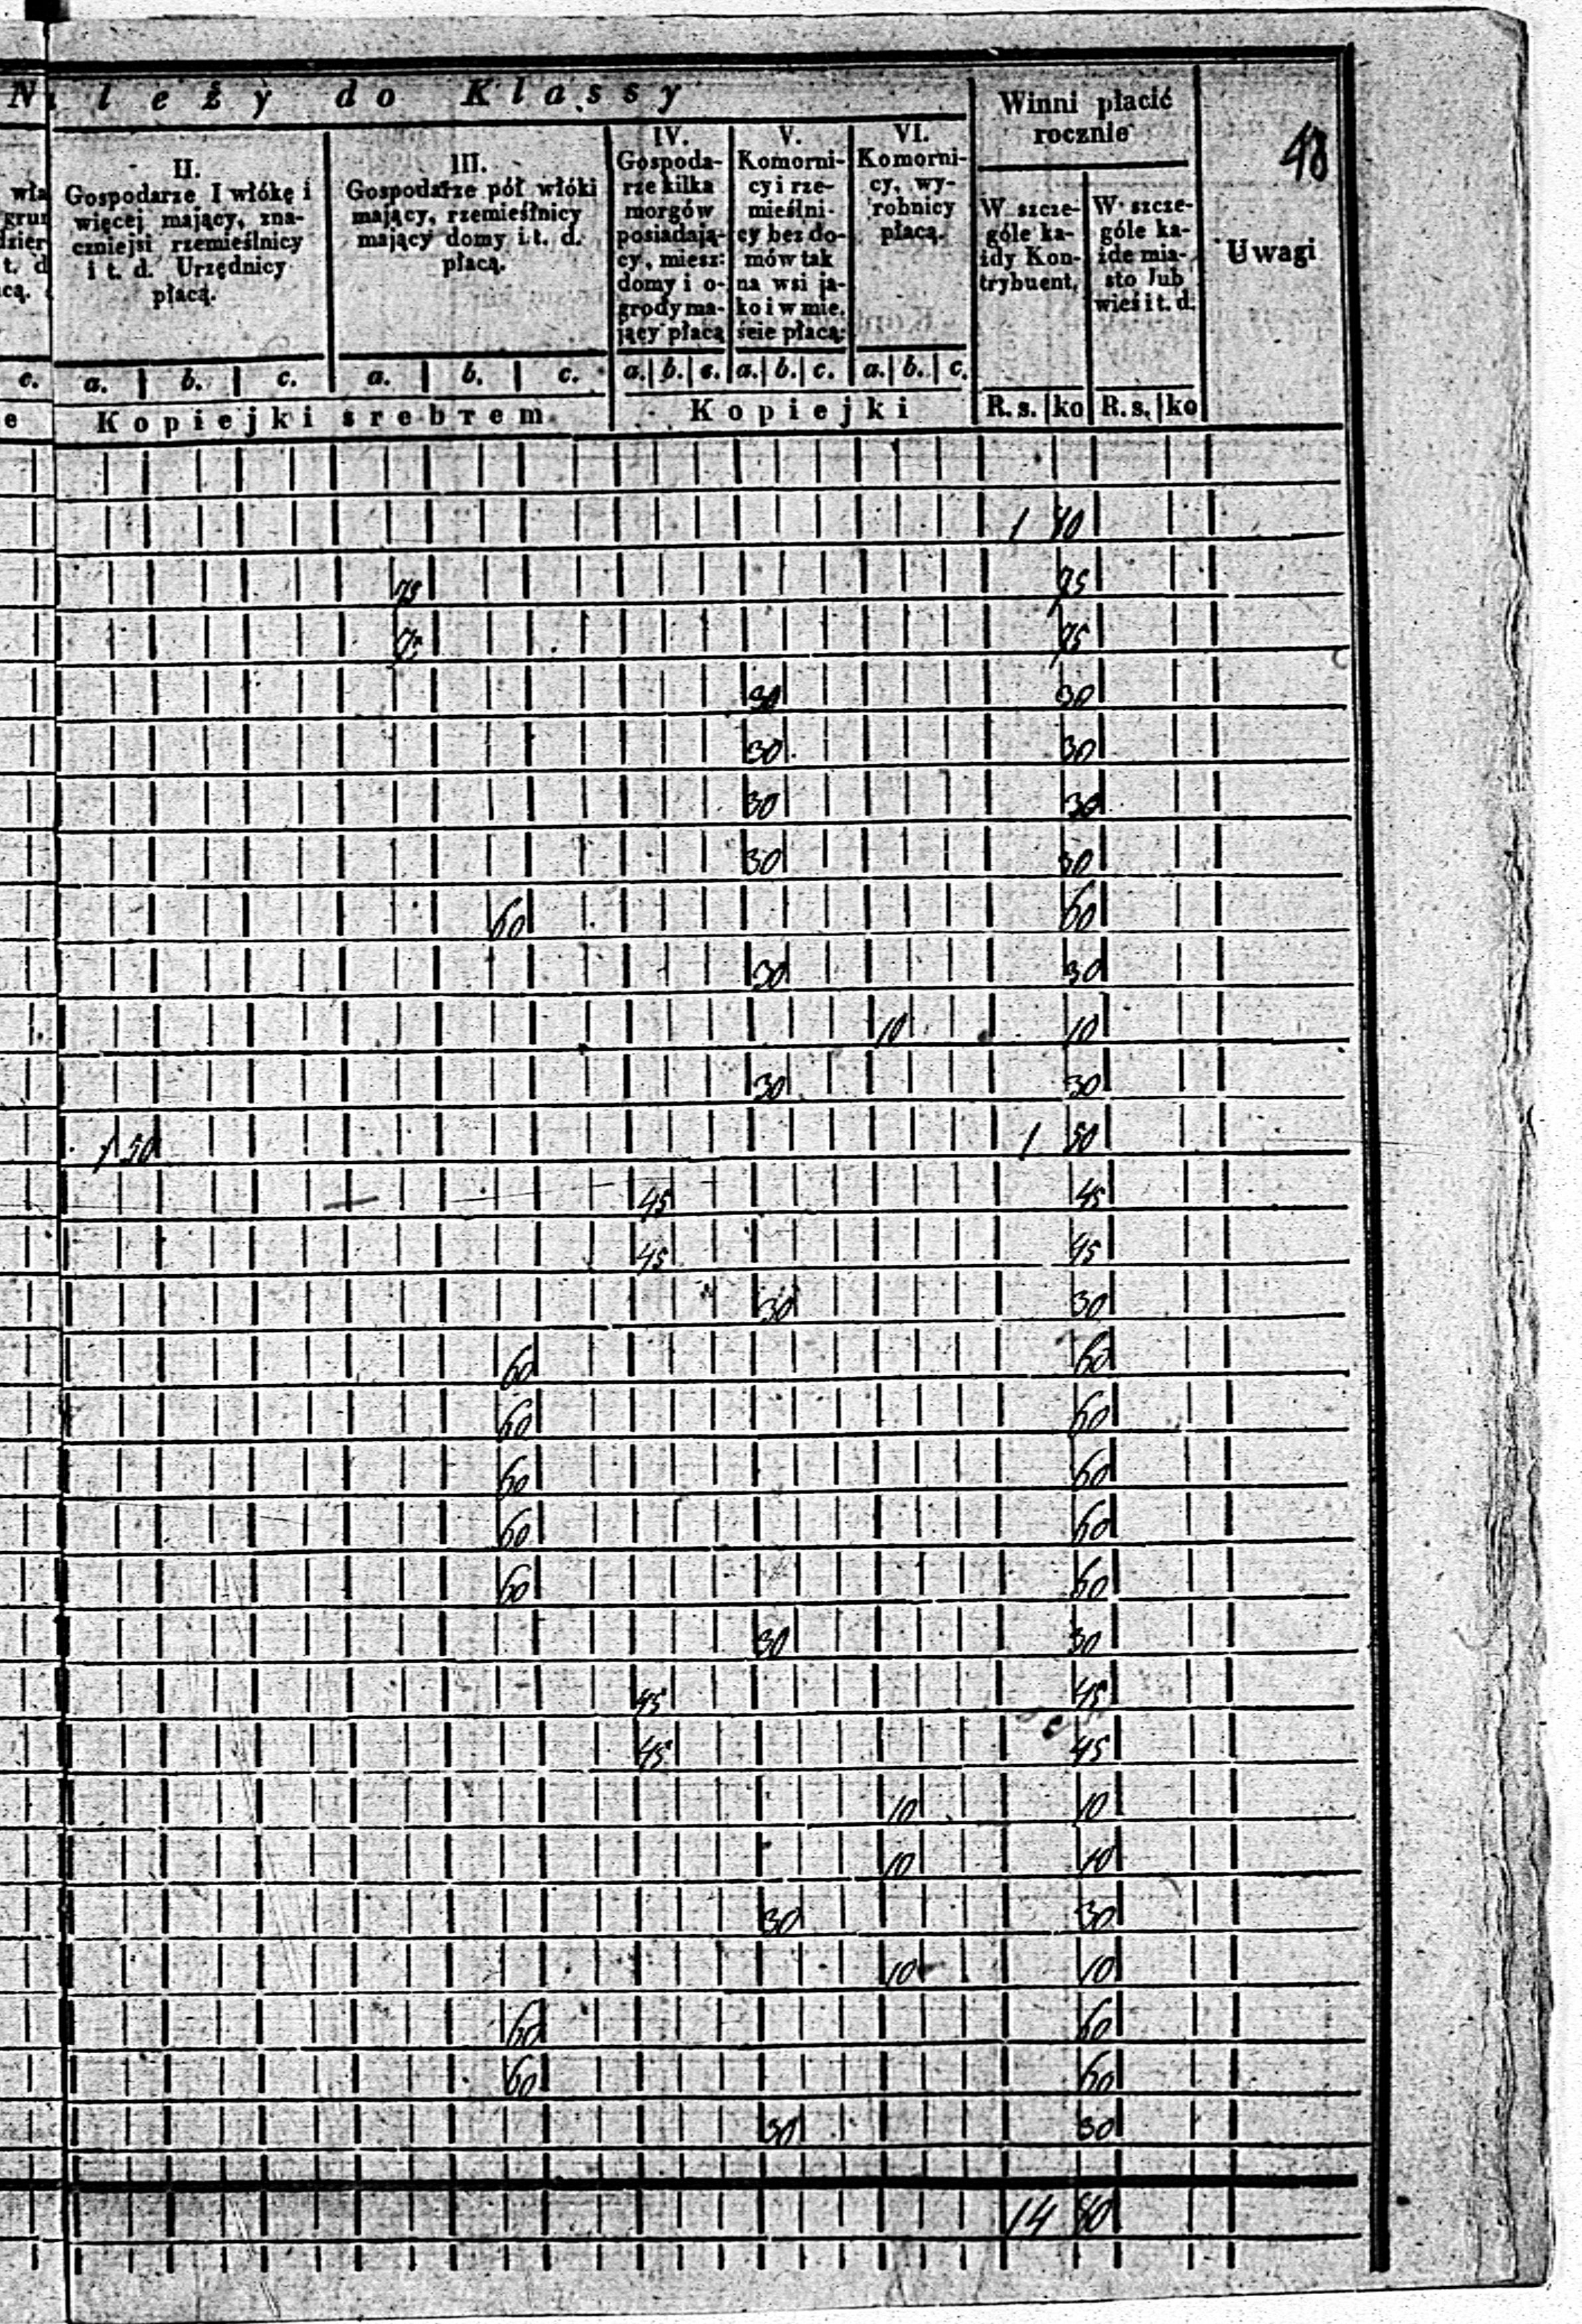 Należy do Klassy
Winni płacić
rocznie
48
wła
grun
dzier
t. d
cą.
II.
Gospodarze 1 włókę i
więcej mający, zna-
czniejsi rzemieślnicy
i t. d. Urzędnicy
płacą.
III.
Gospodarze pół włóki
mający, rzemieślnicy
mający domy i t. d.
płacą.
IV.
Gospoda-
rze kilka
morgów
posiadają-
cy, miesz:
domy i o-
grody ma-
jący płacą
V.
Komorni-
cy i rze-
mieślni-
cy bez do-
mów tak
na wsi ja-
ko i w mie.
ście płacą:
VI.
Komorni-
cy, wy-
robnicy
płacą.
W szcze-
góle ka-
żdy Kon-
trybuent.
W szcze-
góle ka-
żde mia-
sto lub
wieś i t. d.
Uwagi
c. a. b. c. a. b. c. a. b. c. a. b. c. a. b. c.
e Kopiejki śrebrem Kopiejki R. s. ko R. s. ko
1 40
75 75
75 75
30 30
30 30
30 30
30 30
60 60
30 30
10 10
30 30
1 50 1 50
45 45
45 45
30 30
60 60
60 60
60 60
60 60
60 60
30 30
45 45
45 45
10 10
10 10
30 30
10 10
60 60
60 60
30 30
14 80